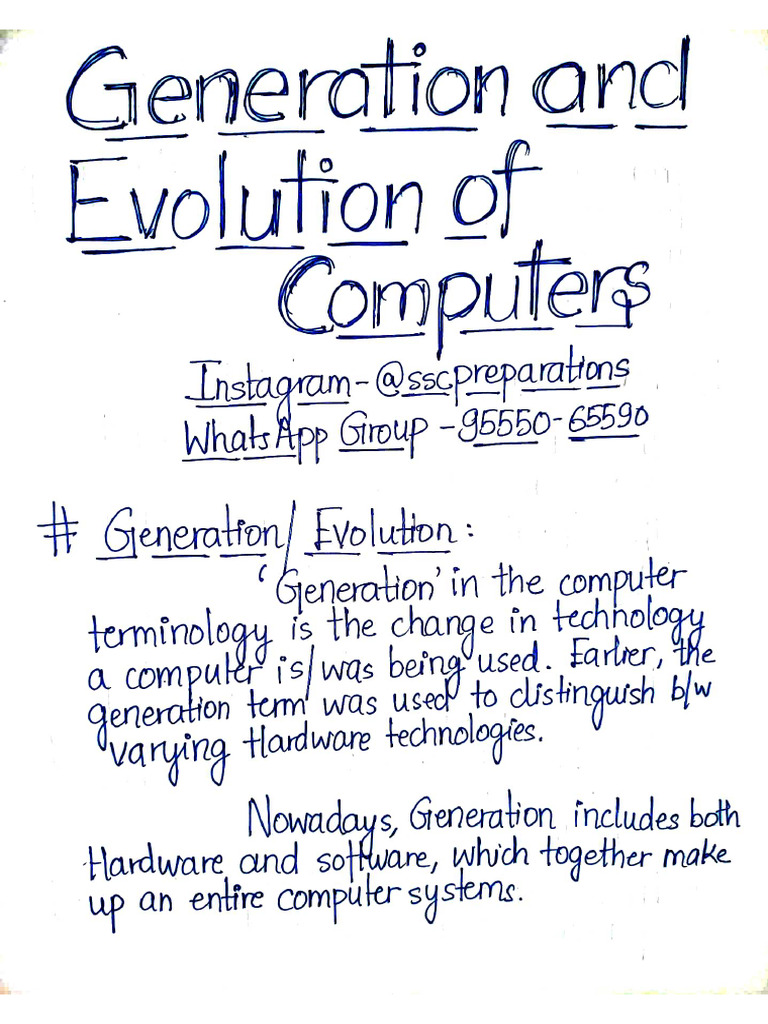 Generation and
Evolution of
Computers
Instagram - @sscpreparations
WhatsApp Group - 95550-65590
# Generation/ Evolution :
'Generation' in the computer
terminology is the change in technology
a computer is/was being used. Earlier, the
generation term was used to distinguish b/w
varying Hardware technologies.
Nowadays, Generation includes both
Hardware and software, which together make
up an entire computer systems.